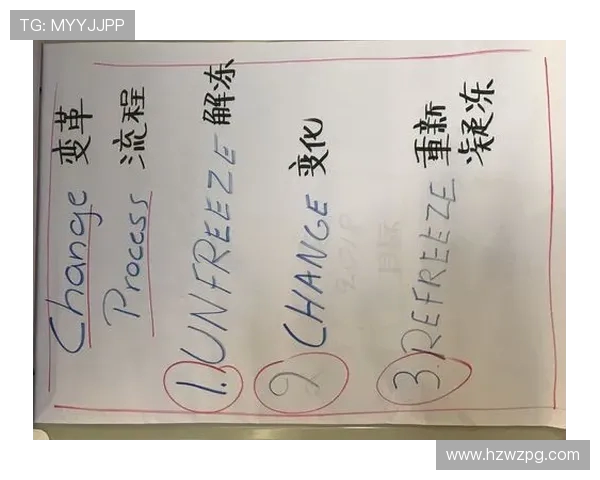 TG: MYYJJPP
Change 变革
Process 流程
1. UNFREEZE 解冻
2. CHANGE 变化
3. REFREEZE 重新
凝冻
www.hzwzpg.com